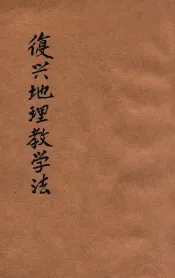 復兴地理教学法